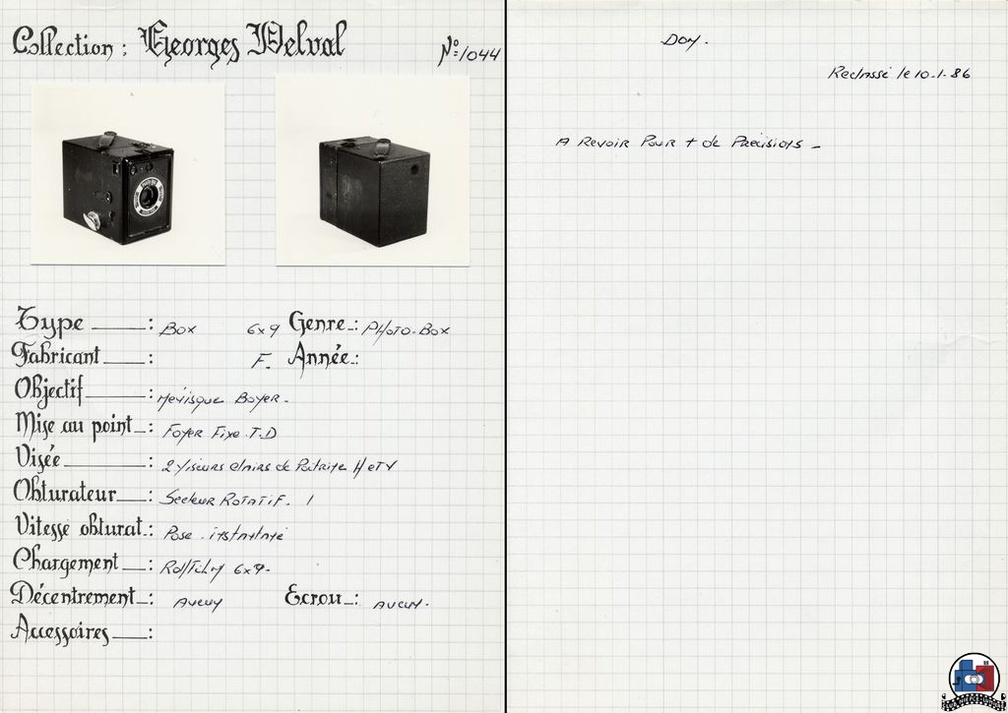 Collection : Georges Delval
N° 1044
Type : Box 6x9 Genre : Photo-Box
Fabricant : F. Année :
Objectif : Ménisque Boyer.
Mise au point : Foyer Fixe T.D
Visée : 2 Viseurs clairs de Poitrine H et V
Obturateur : Secteur Rotatif. 1
Vitesse obturat. : Pose . instantané
Chargement : Rollfilm 6x9.
Décentrement : Aucun Ecrou : Aucun.
Accessoires :
Don.
Reclassé le 10.1.86
A Revoir Pour + de Précisions -